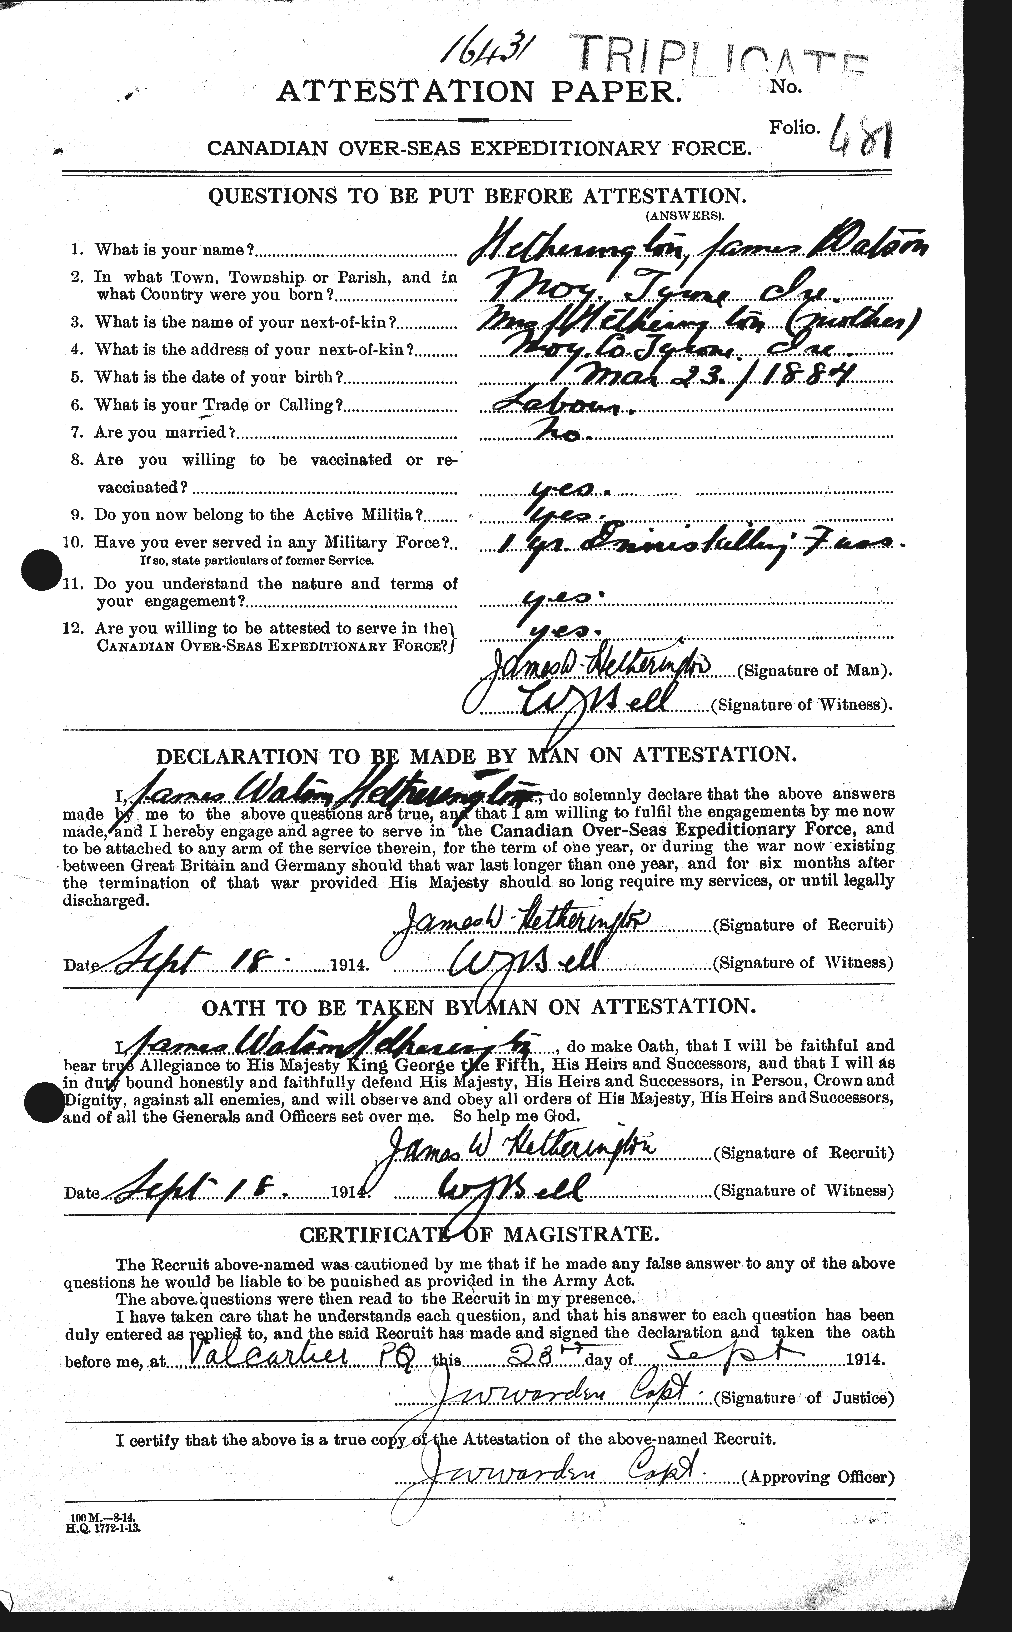 16431 TRIPLICATE
ATTESTATION PAPER. No.
Folio. 481
CANADIAN OVER-SEAS EXPEDITIONARY FORCE.
QUESTIONS TO BE PUT BEFORE ATTESTATION.
(ANSWERS).
1. What is your name? Hetherington, James Watson
2. In what Town, Township or Parish, and in
what Country were you born? Moy. Tyrone Ire.
3. What is the name of your next-of-kin? Mrs Hetherington (mother)
4. What is the address of your next-of-kin? Moy Co Tyrone. Ire.
5. What is the date of your birth? Mar 23. / 1884
6. What is your Trade or Calling? Labour.
7. Are you married? No.
8. Are you willing to be vaccinated or re-
vaccinated? yes.
9. Do you now belong to the Active Militia? yes.
10. Have you ever served in any Military Force? 1 yr. Inniskilling Fuss.
If so, state particulars of former Service.
11. Do you understand the nature and terms of
your engagement? yes.
12. Are you willing to be attested to serve in the
CANADIAN OVER-SEAS EXPEDITIONARY FORCE? yes.
James W. Hetherington (Signature of Man).
WJBell (Signature of Witness).
DECLARATION TO BE MADE BY MAN ON ATTESTATION.
I, James Watson Hetherington, do solemnly declare that the above answers
made by me to the above questions are true, and that I am willing to fulfil the engagements by me now
made, and I hereby engage and agree to serve in the Canadian Over-Seas Expeditionary Force, and
to be attached to any arm of the service therein, for the term of one year, or during the war now existing
between Great Britain and Germany should that war last longer than one year, and for six months after
the termination of that war provided His Majesty should so long require my services, or until legally
discharged.
James W. Hetherington (Signature of Recruit)
Date Sept 18. 1914. WJBell (Signature of Witness)
OATH TO BE TAKEN BY MAN ON ATTESTATION.
I, James Watson Hetherington, do make Oath, that I will be faithful and
bear true Allegiance to His Majesty King George the Fifth, His Heirs and Successors, and that I will as
in duty bound honestly and faithfully defend His Majesty, His Heirs and Successors, in Person, Crown and
Dignity, against all enemies, and will observe and obey all orders of His Majesty, His Heirs and Successors,
and of all the Generals and Officers set over me. So help me God.
James W Hetherington (Signature of Recruit)
Date Sept 18. 1914. WJBell (Signature of Witness)
CERTIFICATE OF MAGISTRATE.
The Recruit above-named was cautioned by me that if he made any false answer to any of the above
questions he would be liable to be punished as provided in the Army Act.
The above questions were then read to the Recruit in my presence.
I have taken care that he understands each question, and that his answer to each question has been
duly entered as replied to, and the said Recruit has made and signed the declaration and taken the oath
before me, at Valcartier PQ this 23rd day of Sept 1914.
JWWarden Capt. (Signature of Justice)
I certify that the above is a true copy of the Attestation of the above-named Recruit.
JWWarden Capt. (Approving Officer)
100 M.—8-14.
H.Q. 1772-1-13.